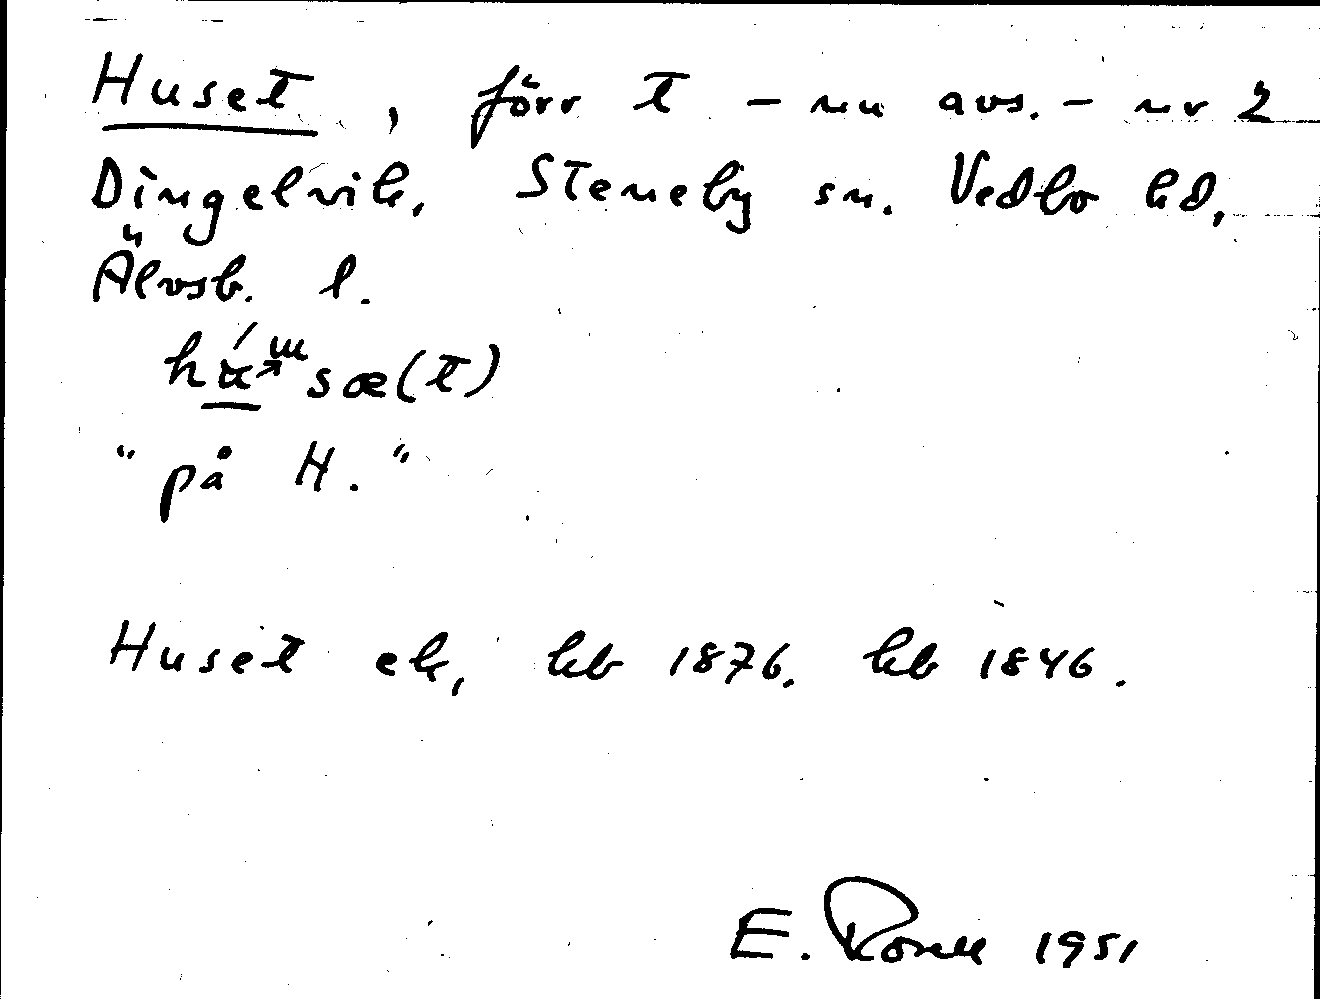 Huset, förr t – nu avs. – nr 2
Dingelvik, Steneby sn. Vedbo hd,
Älvsb. l.
sæ(t)
"på H."
Huset ek, hb 1876. hb 1846.
E. 1951